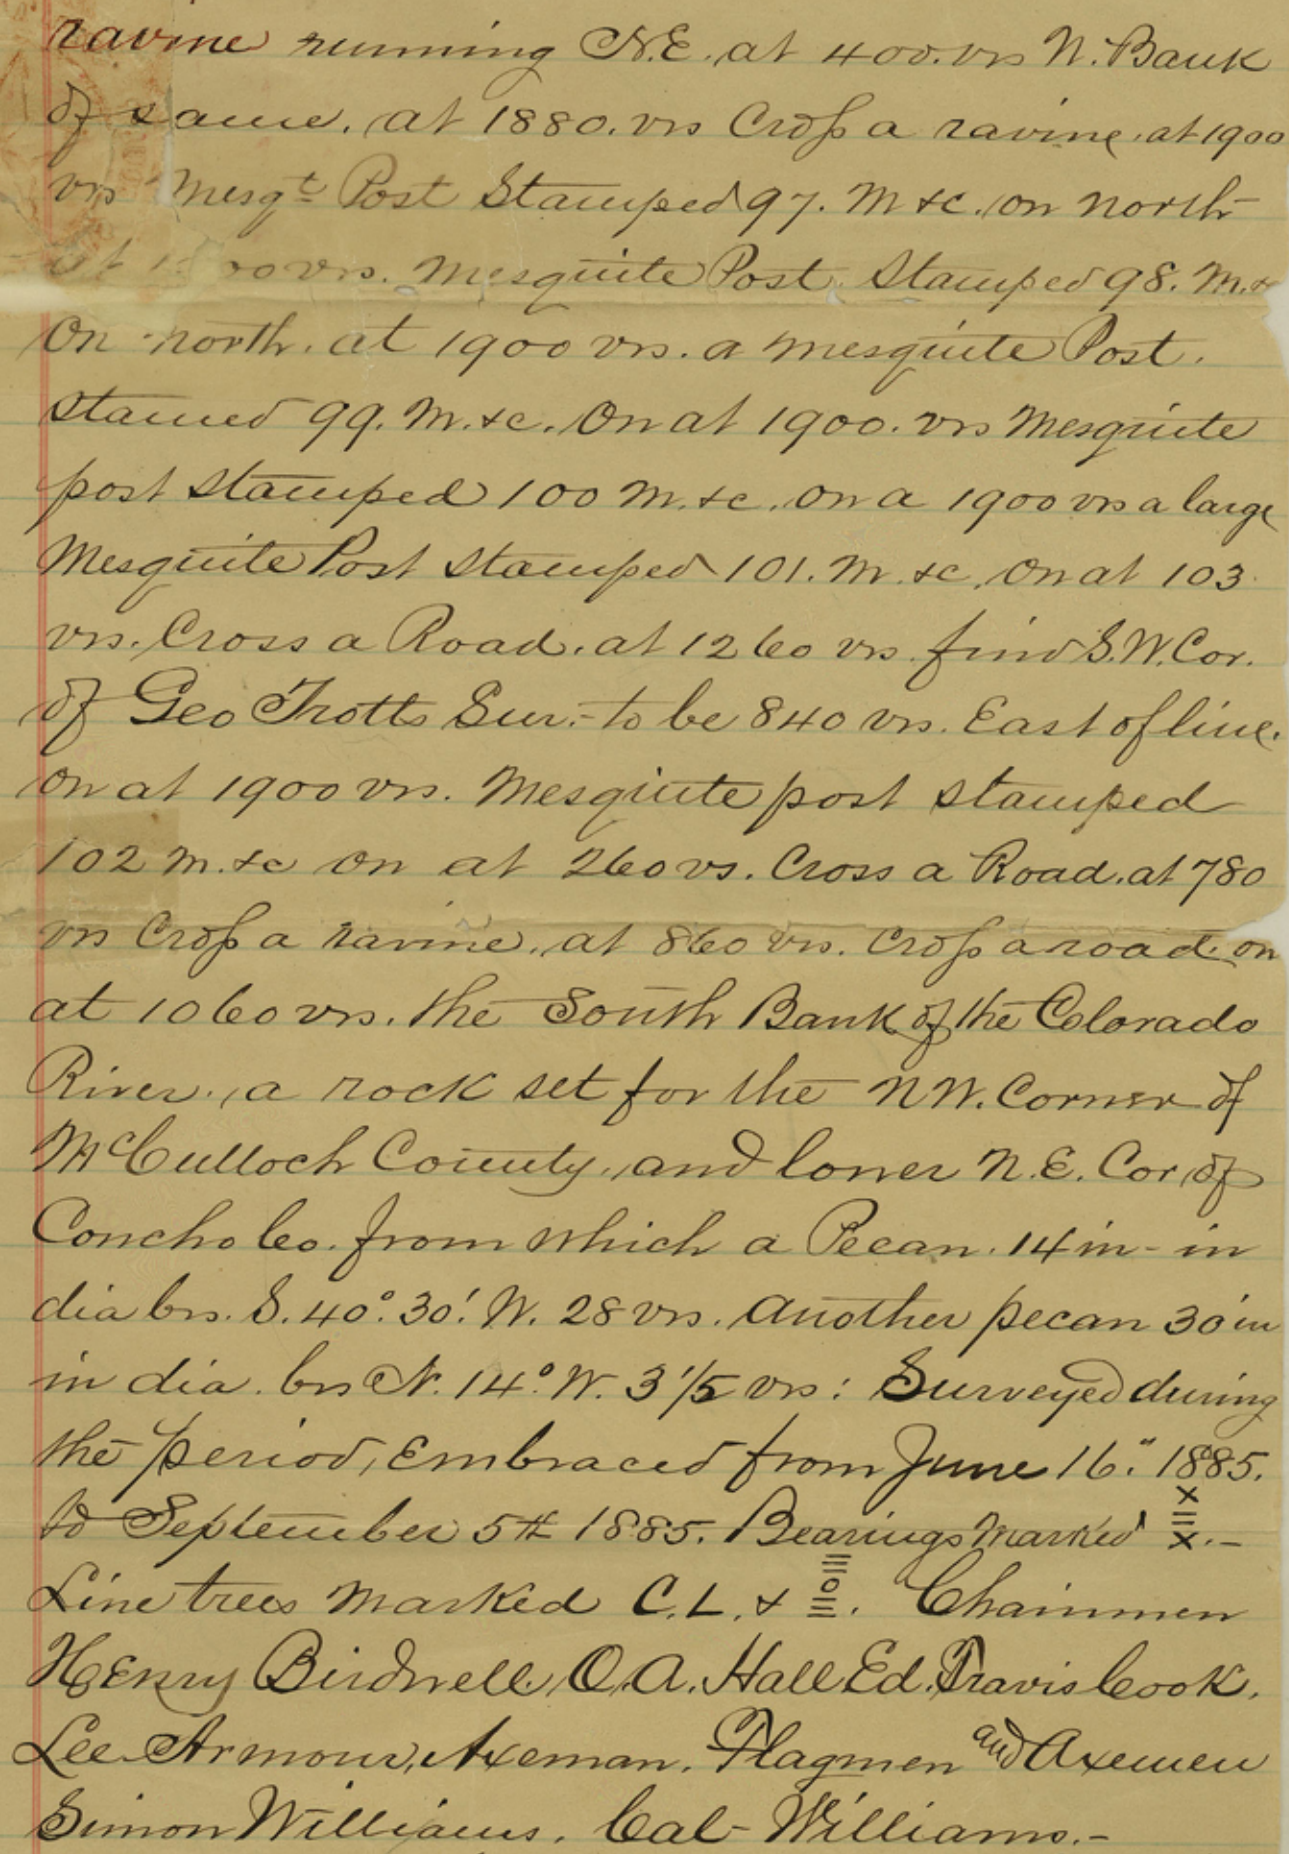 ravine running N.E. at 400. vrs N. Bank
of same. at 1880. vrs Cross a ravine. at 1900
vrs Mesqt Post Stamped 97. M &c. on north
vrs. Mesquite Post. Stamped 98. M. &
On north. at 1900 vrs. a mesquite Post.
Stamed 99. M. &c. On at 1900. vrs Mesquite
post stamped 100 M. &c. on a 1900 vrs a large
Mesquite Post stamped 101. M. &c. On at 103
vrs. Cross a Road. at 1260 vrs find S.W. Cor.
of Geo Trotts Sur. - to be 840 vrs. East of line.
on at 1900 vrs. Mesquite post stamped
102 M. &c on at 260 vs. Cross a Road. at 780
vrs Cross a ravine. at 860 vrs. Cross a road. on
at 1060 vrs. the South Bank of the Colorado
River. a rock set for the N W. Corner of
McCulloch County, and lower N.E. Cor. of
Concho Co. from which a Pecan. 14 in - in
dia brs. S. 40°. 30'. W. 28 vrs. another pecan 30 in
in dia. brs N. 14°. W. 3 1/5 vrs: Surveyed during
the period, Embraced from June 16." 1885.
to September 5th 1885. Bearings Marked X = X. -
Line trees marked C. L. & ≡ o ≡. Chainmen
Henry Birdwell. O. A. Hall Ed. Travis Cook.
Lee Armour, Axeman. Flagmen and Axemen
Simon Williams. Cal - Williams. -